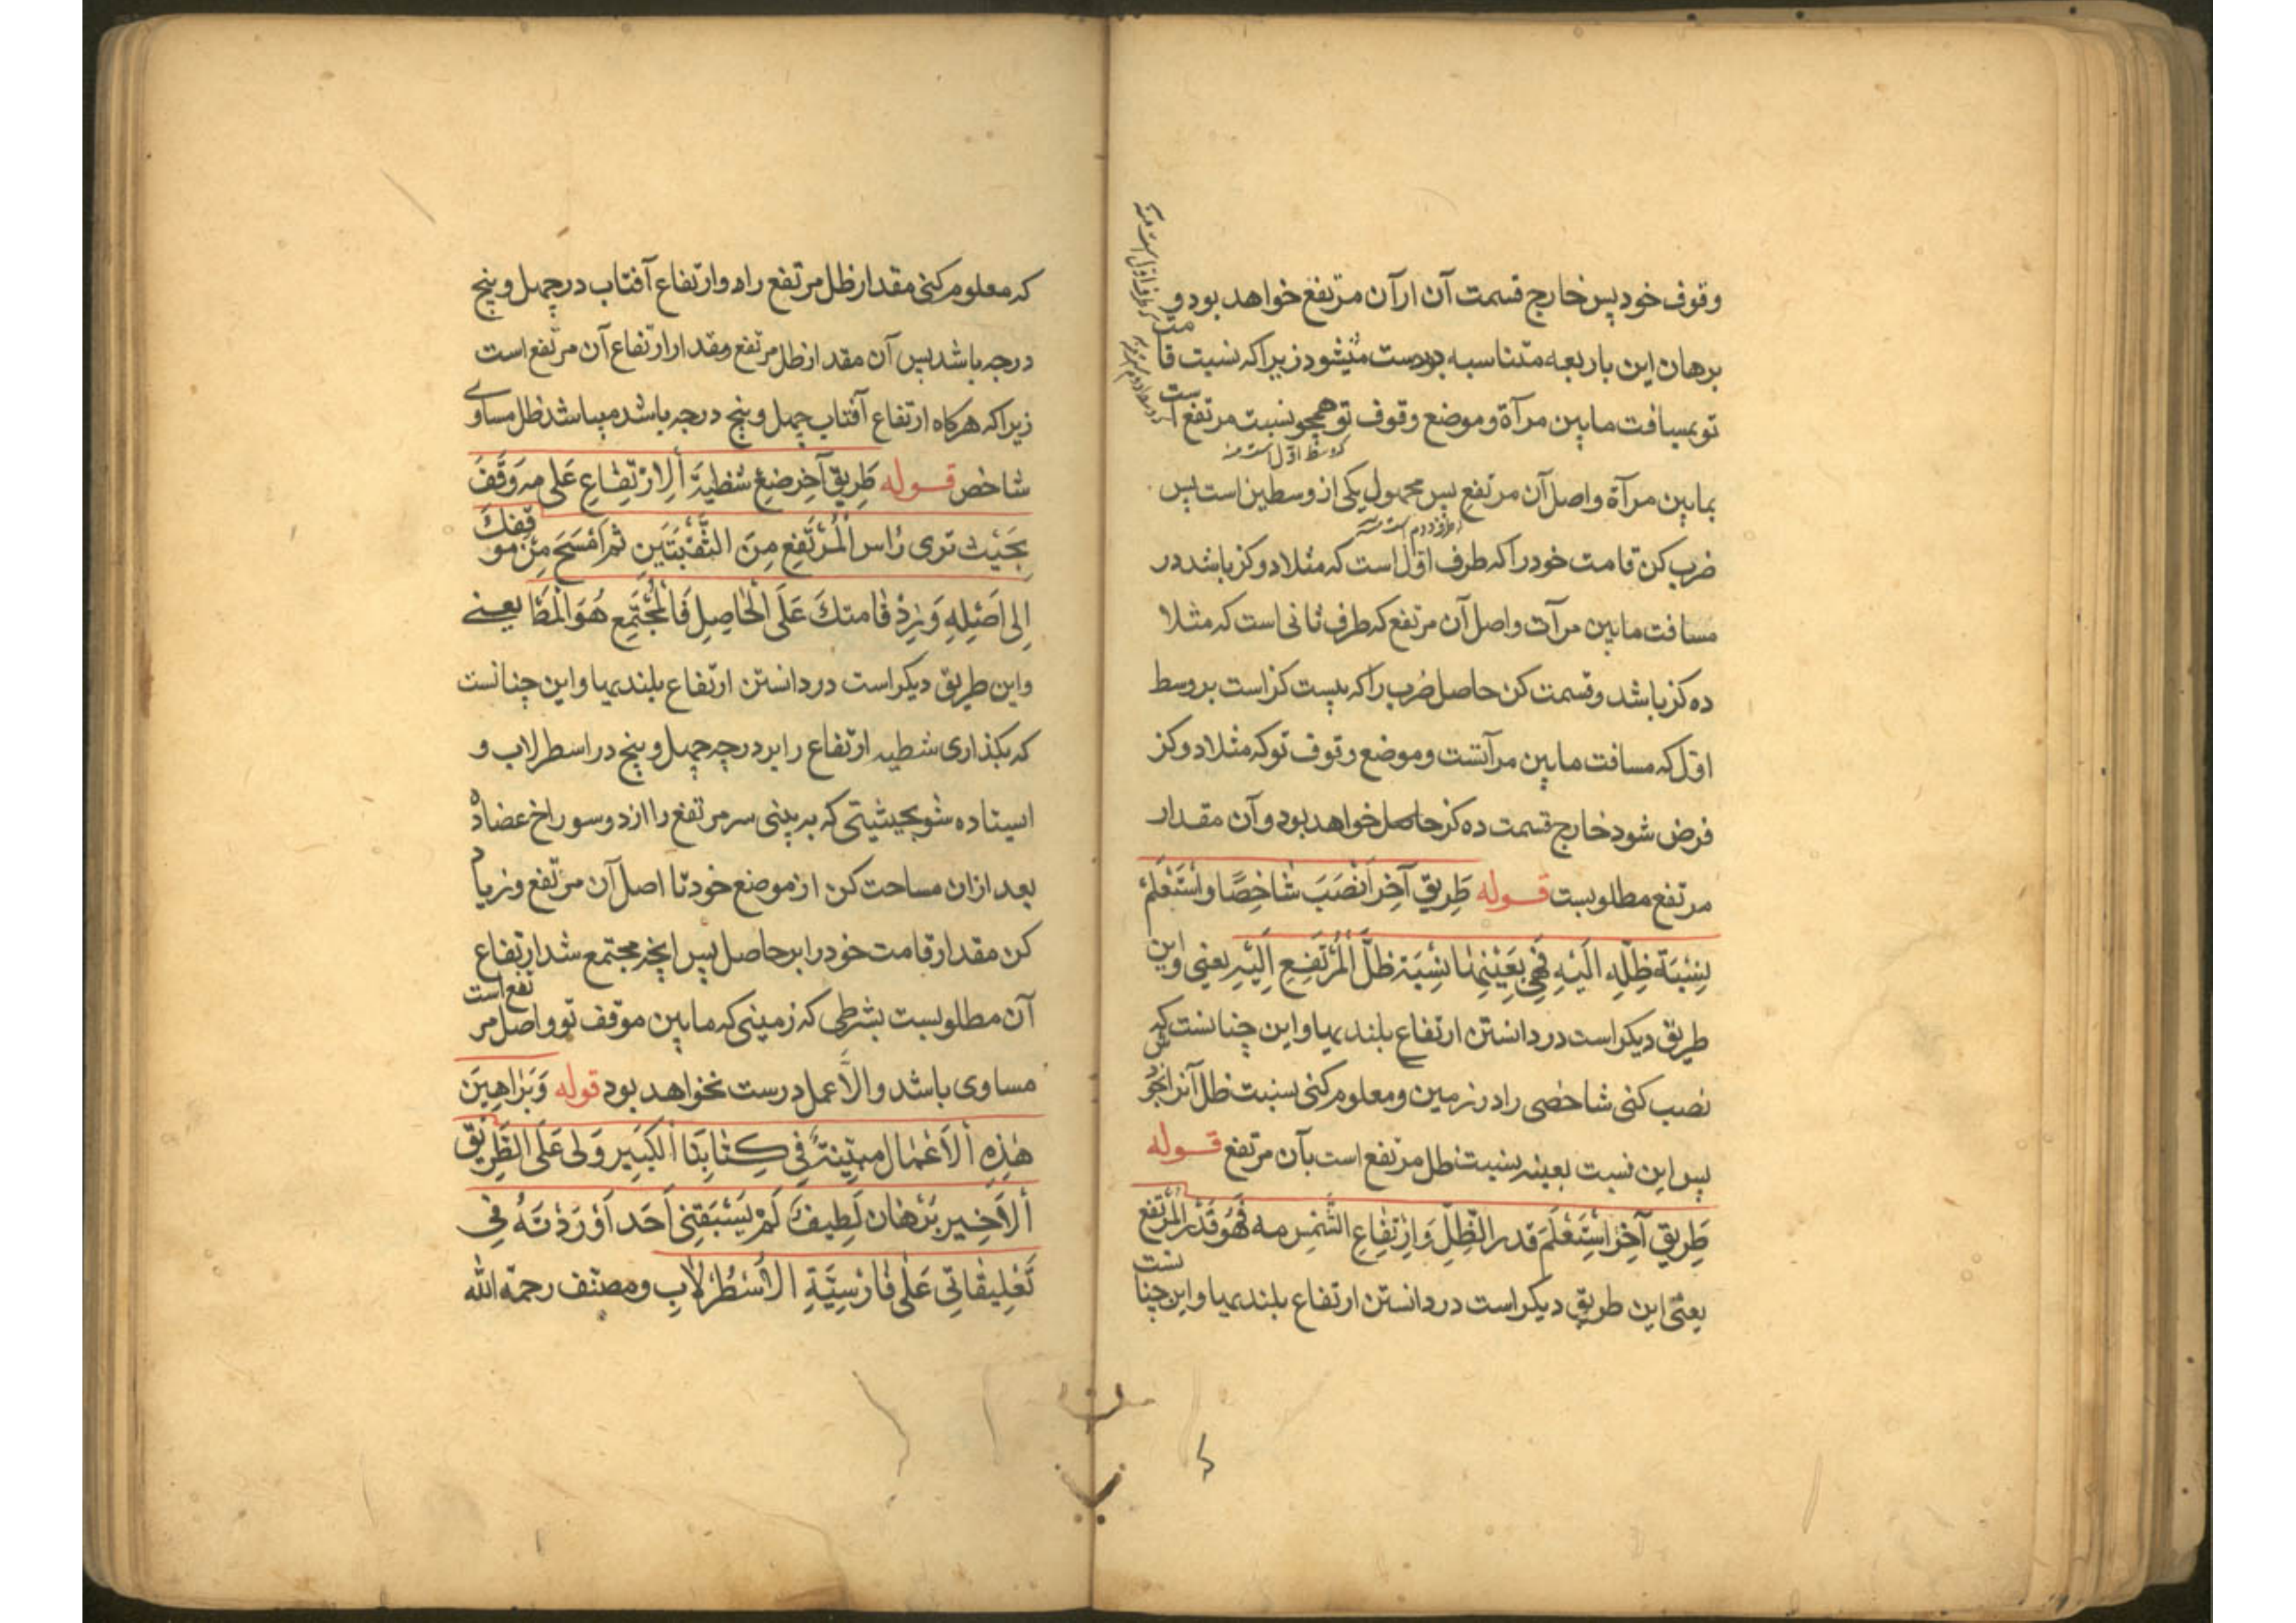 وقوف خود پس خارج قسمت آن ارآن مرتفع خواهد بود و
برهان این باربعه متناسبه بودست میشود زیرا که نسبت قامت
تو بمسافت مابین مرآة و موضع وقوف تو همچو نسبت مرتفع است
که وسط اول است منه
بمابین مرآة واصل آن مرتفع پس مجهول یکی از وسطین است پس
ضرب کن قامت خود را که طرف اول است که مثلا دو کز باشد در
مسافت مابین مرآت واصل آن مرتفع که طرف ثانی است که مثلا
ده کز باشد و قسمت کن حاصل ضرب را که بیست کز است بر وسط
اول که مسافت مابین مرآتست و موضع وقوف تو که مثلا دو کز
فرض شود خارج قسمت ده کز حاصل خواهد بود و آن مقدار
مرتفع مطلوبست قوله طَرِيق آخر اَنْصَبَ شَاخِصًا وَاسْتَعْلَمْ
نِسْبَةَ ظِلِّهِ اِلَيْهِ فَهِيَ بِعَيْنِهَا نِسْبَة ظلّ الْمُرْتَفِعِ اِلَيْهِ یعنی و این
طریق دیکر است در دانستن ارتفاع بلندیها و این چنانست که
نصب کنی شاخصی را در زمین و معلوم کنی نسبت ظل آنرا بخودش
پس این نسبت بعینه نسبت ظل مرتفع است بآن مرتفع قوله
طَرِيق آخر اسْتَعْلَمَ قدر الظِّلِّ وَارْتِفَاعِ الشَّمْسِ مه فَهُوَ قَدْرُ الْمُرْتَفِعِ
یعنی این طریق دیکر است در دانستن ارتفاع بلندیها و این چنانست
که معلوم کنی مقدار ظل مرتفع را و ارتفاع آفتاب در چهل و پنج
درجه باشد پس آن مقدار ظل مرتفع مقدار ارتفاع آن مرتفع است
زیرا که هرکاه ارتفاع آفتاب چهل و پنج درجه باشد میباشد ظل مساوی
شاخص قوله طَرِيق آخر ضَعْ شَظِيَّةَ الِارْتِفَاعِ عَلى مه وَقِفْ
بِحَيْثُ تَرى رَاس الْمُرْتَفِعِ مِنَ الثَّقْبَتَيْنِ ثم امْسَحْ مِنْ مَوْقِفِكَ
اِلى اَصْلِهِ وَزِدْ قَامَتَكَ عَلَى الْحَاصِلِ فَالْمُجْتَمِع هُوَ الْمَطَ یعنے
و این طریق دیکر است در دانستن ارتفاع بلندیها و این چنانست
که بکذاری شظیه ارتفاع را بر درجه چهل و پنج در اسطرلاب و
ایستاده شو بحیثیتی که به بینی سر مرتفع را از دو سوراخ عضاده
بعد ازان مساحت کن از موضع خود تا اصل آن مرتفع و زیاد
کن مقدار قامت خود را بر حاصل پس آنچه مجتمع شد ارتفاع
آن مطلوبست بشرطی که زمینی که مابین موقف تو واصل مرتفع است
مساوی باشد والّا عمل درست نخواهد بود قوله وَبَرَاهِينَ
هٰذِهِ الْاَعْمَال مبیّنة فِي كِتَابِنَا الْكَبِيرِ وَلِى عَلَى الطَّرِيقِ
الْاَخِيرِ بُرْهَان لَطِيف لَمْ يَسْبِقْنِى اَحَد اَوْرَدْتهُ فِى
تَعْلِيقَاتِى عَلى فَارْسِيَّةِ الْاَسْطُرْلَابِ ومصنّف رحمه الله